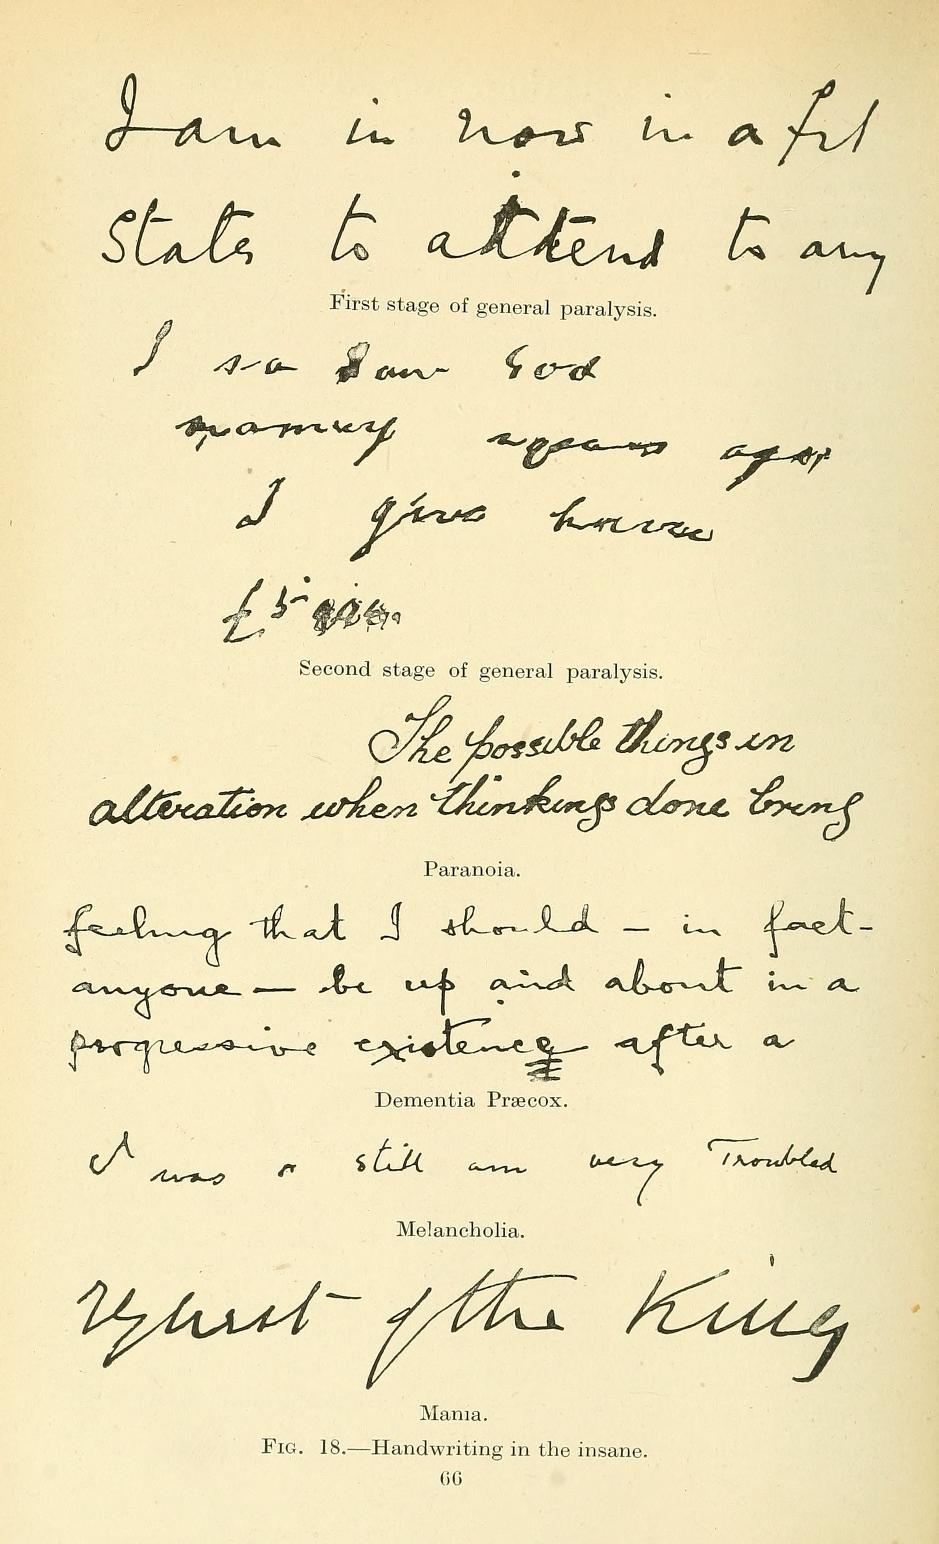 I am in now in a fit
State to attend to any
First stage of general paralysis.
I sa saw God
years ago
I give
£5
Second stage of general paralysis.
The possible things in
alteration when thinkings done bring
Paranoia.
feeling that I should — in fact-
anyone — be up and about in a
progressive existence after a
Dementia Præcox.
I was & still am very Troubled
Melancholia.
request of the King
Mania.
FIG. 18.—Handwriting in the insane.
66